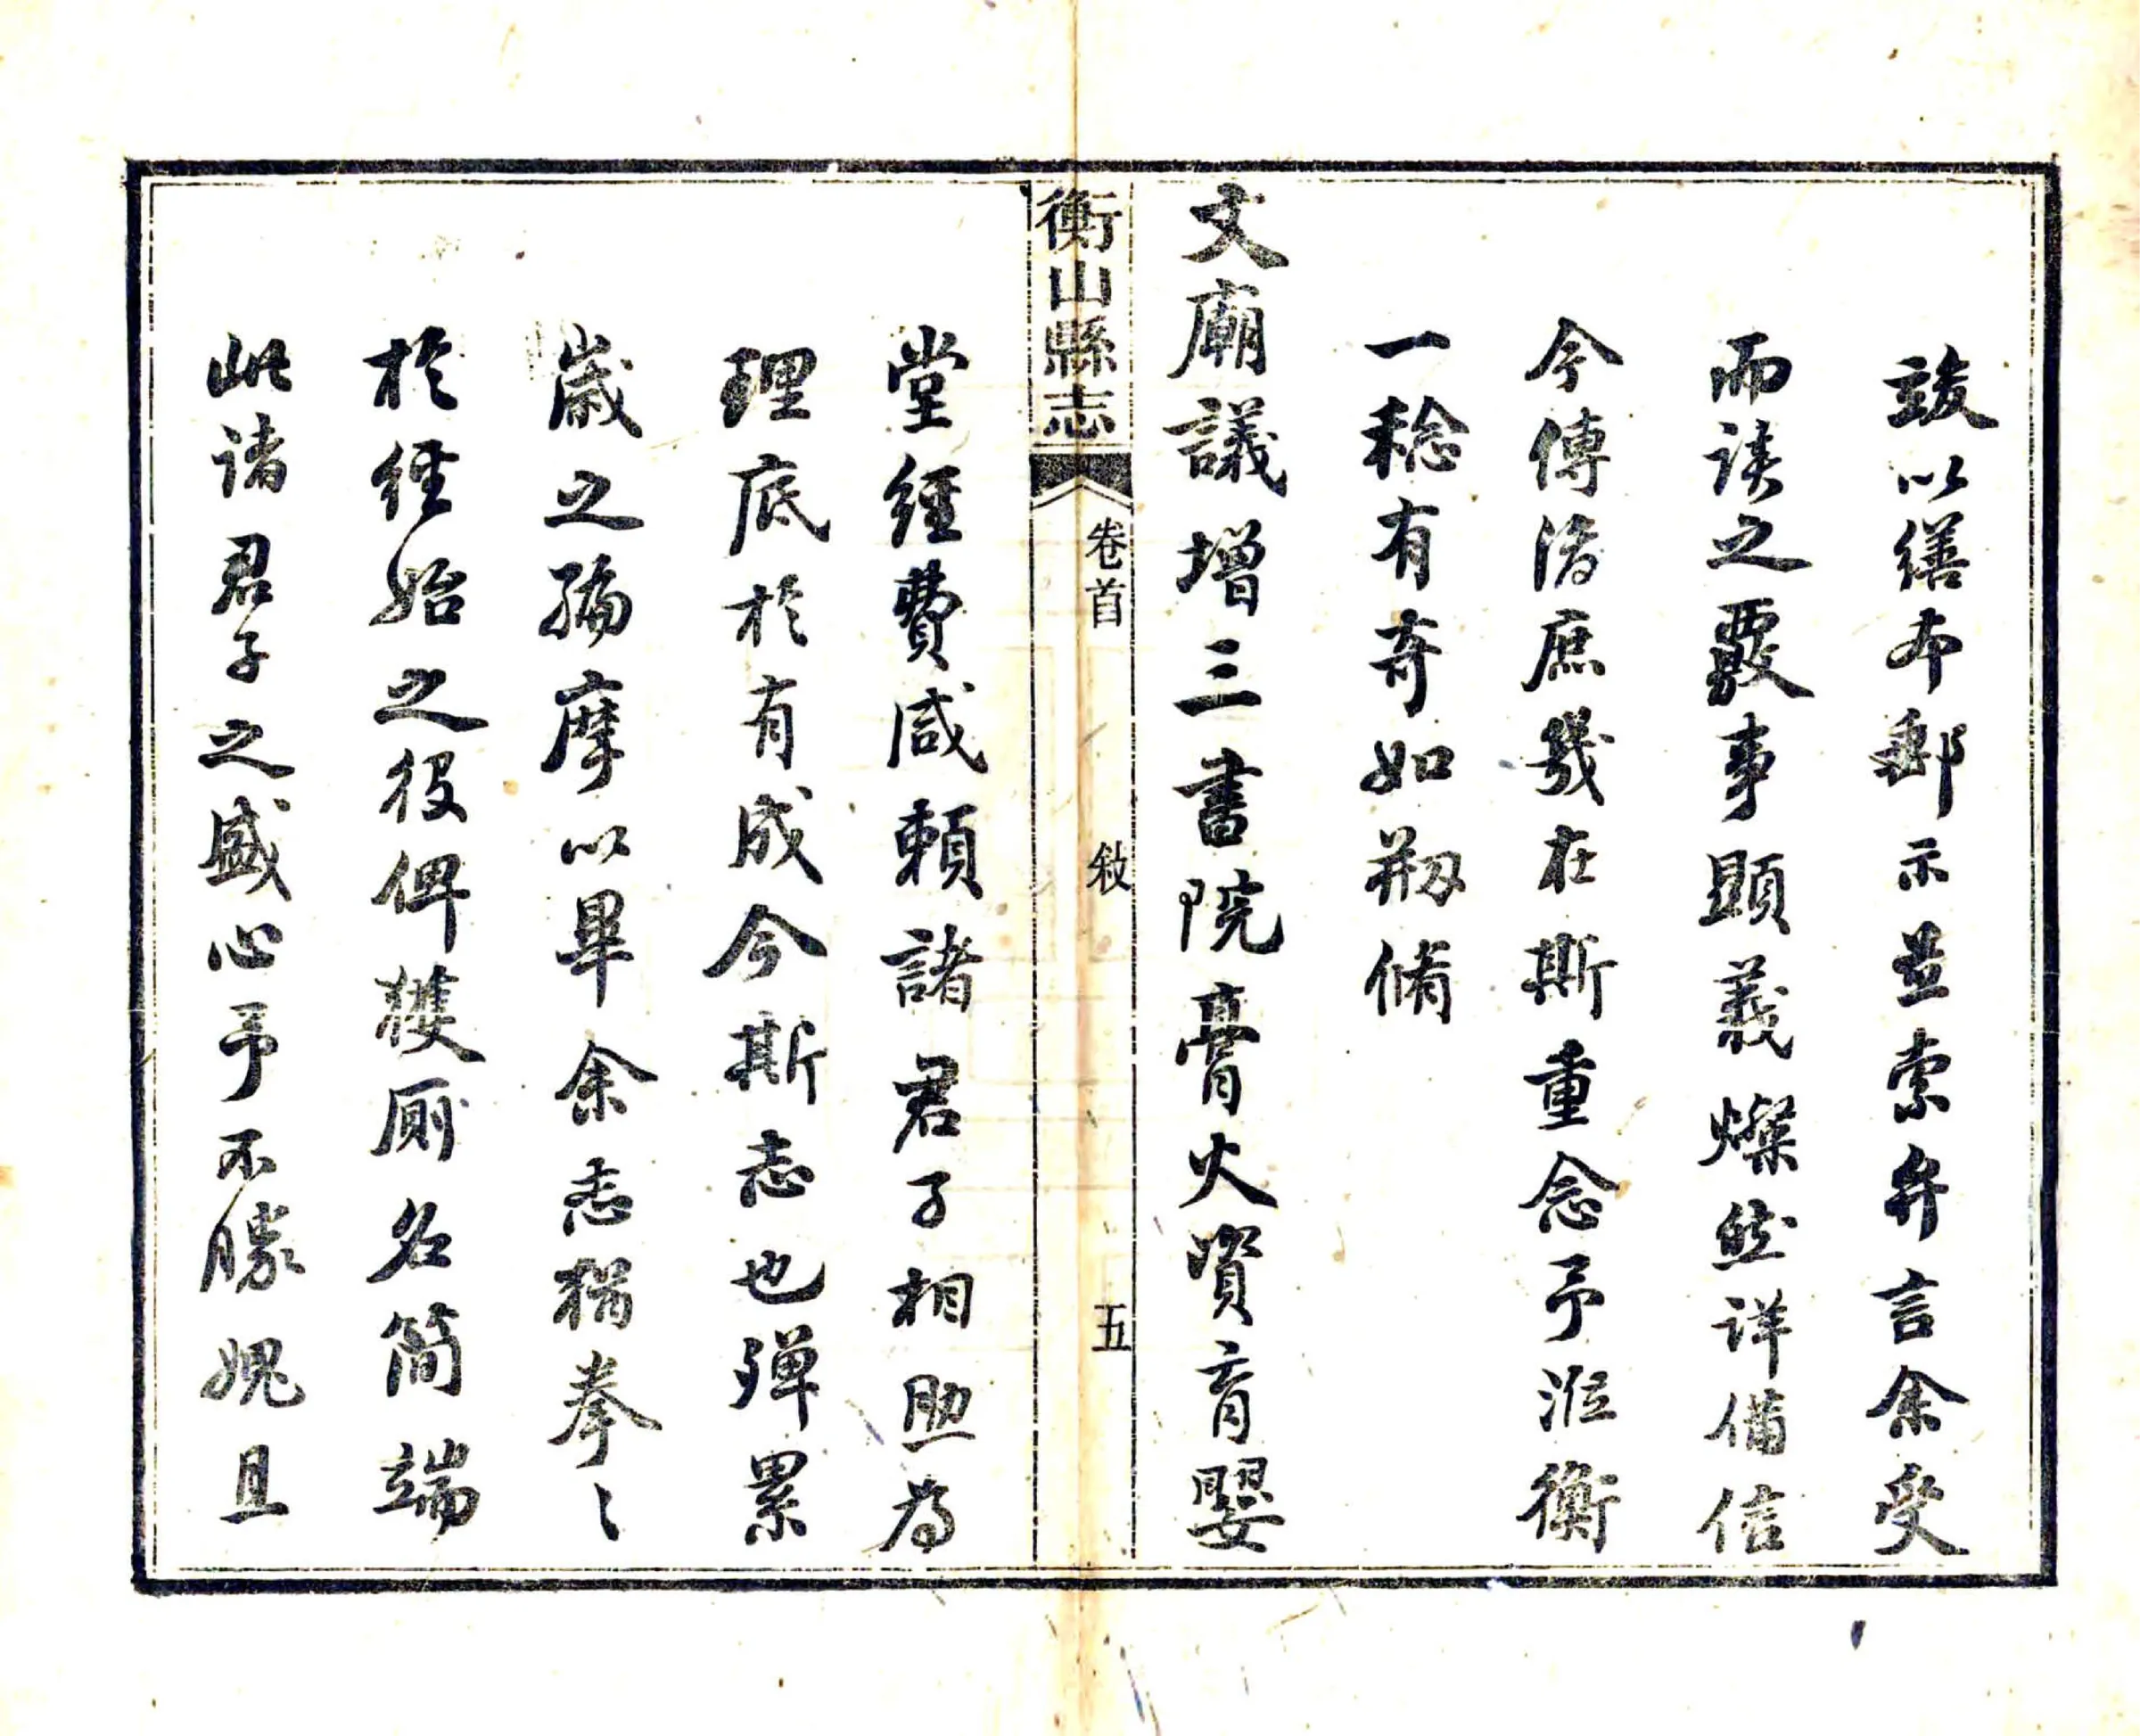 竣以繕本郵示並索弁言余受
而讀之覈事顯義燦然詳備信
今傳後庶幾在斯重念予涖衡
一稔有奇如剏脩
文廟議增三書院膏火資育嬰
衡山縣志
卷首
敘
五
堂經費咸賴諸君子相助為
理底於有成今斯志也殫累
歲之編摩以畢余志猶拳〻
於經始之役俾獲厠名簡端
此諸君子之盛心予不勝媿且